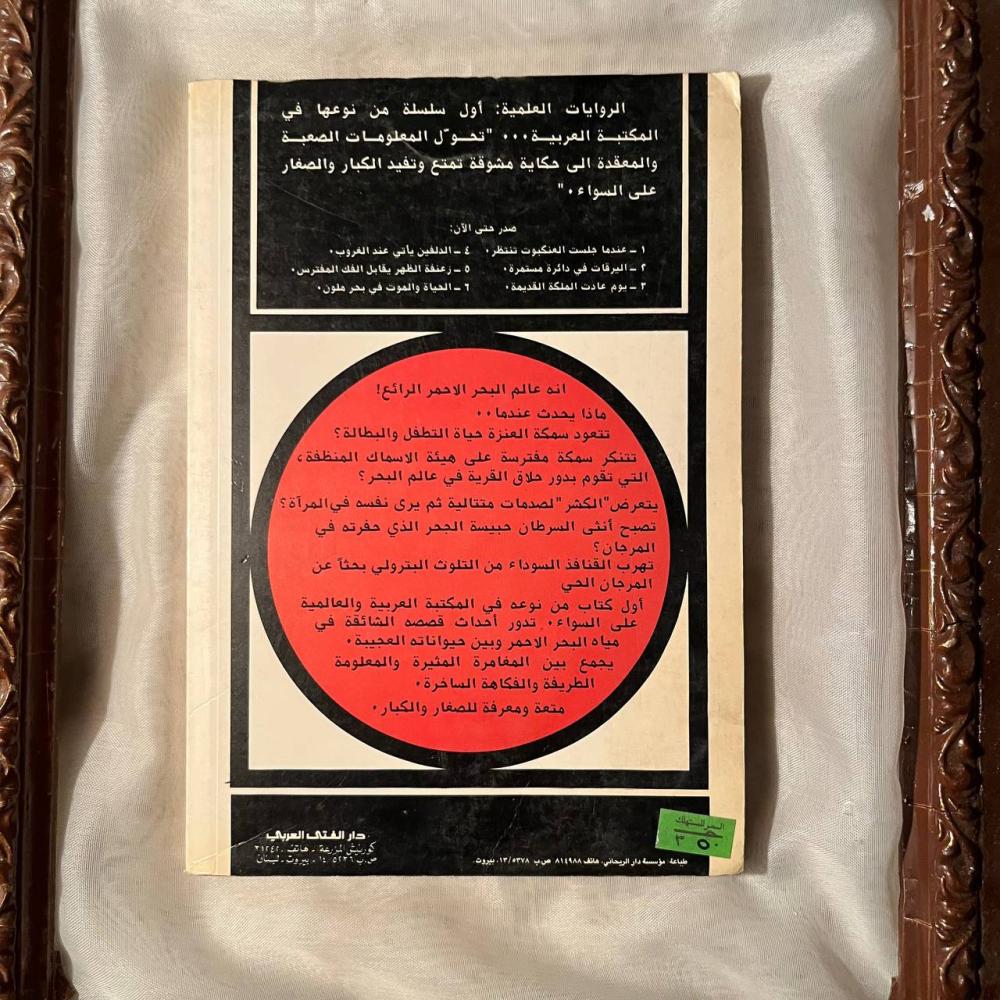 الروايات العلمية: أول سلسلة من نوعها في
المكتبة العربية... "تحوّل المعلومات الصعبة
والمعقدة الى حكاية مشوقة تمتع وتفيد الكبار والصغار
على السواء."
صدر حتى الآن:
١ - عندما جلست العنكبوت تنتظر.
٢ - اليرقات في دائرة مستمرة.
٣ - يوم عادت الملكة القديمة.
٤ - الدلفين يأتي عند الغروب.
٥ - زعنفة الظهر يقابل الفك المفترس.
٦ - الحياة والموت في بحر ملون.
انه عالم البحر الاحمر الرائع!
ماذا يحدث عندما..
تتعود سمكة العنزة حياة التطفل والبطالة؟
تتنكر سمكة مفترسة على هيئة الاسماك المنظفة،
التي تقوم بدور حلاق القرية في عالم البحر؟
يتعرض "الكشر" لصدمات متتالية ثم يرى نفسه في المرآة؟
تصبح أنثى السرطان حبيسة الجحر الذي حفرته في
المرجان؟
تهرب القنافذ السوداء من التلوث البترولي بحثاً عن
المرجان الحي
أول كتاب من نوعه في المكتبة العربية والعالمية
على السواء. تدور أحداث قصصه الشائقة في
مياه البحر الاحمر وبين حيواناته العجيبة.
يجمع بين المغامرة المثيرة والمعلومة
الطريفة والفكاهة الساخرة.
متعة ومعرفة للصغار والكبار.
دار الفتى العربي
كورنيش المزرعة - هاتف ٣١٢٤٢٠
ص.ب ١٤/٥٢٣٦ - بيروت - لبنان
طباعة: مؤسسة دار الريحاني. هاتف ٨١٤٩٨٨ ص.ب ١٣/٥٣٧٨. بيروت.
السعر للمستهلك